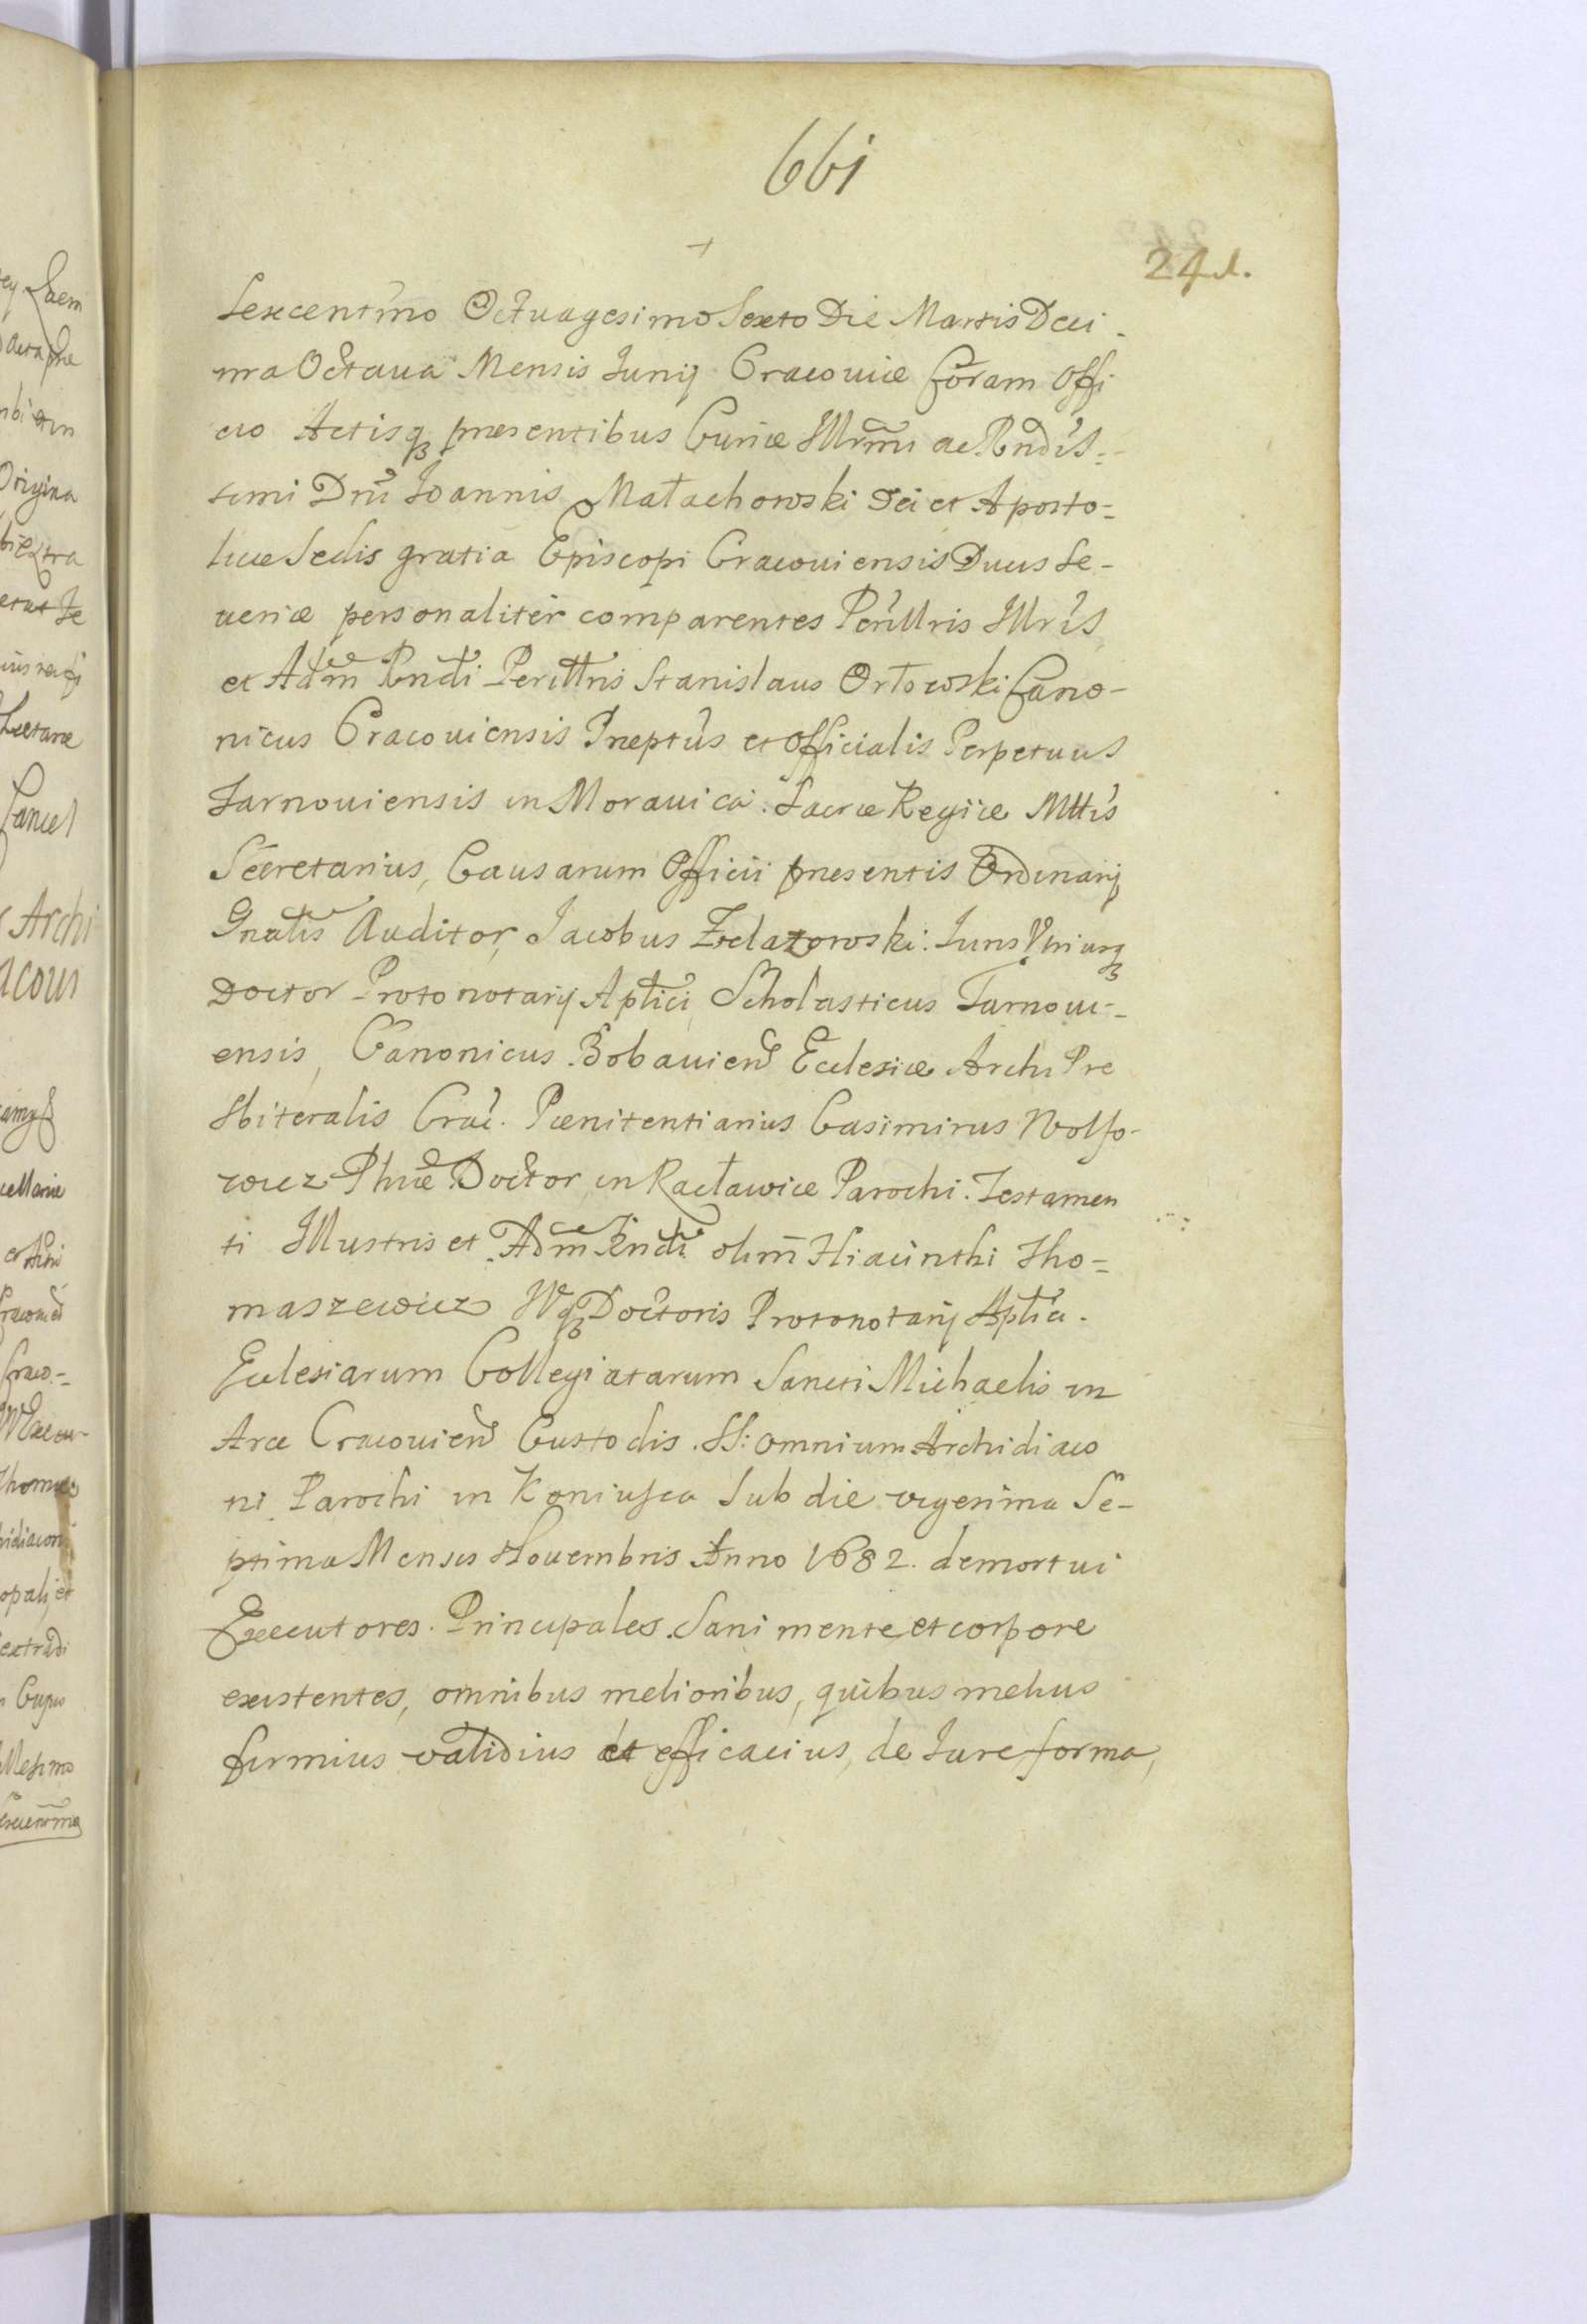 661
241.
Sexcentmo Octuagesimo Sexto Die Martis Deci-
ma Octaua Mensis Iunij Cracouiæ Coram Offi
cio Actisq3 præsentibus Curiæ Illrmi ac Rndis-
simi Dni Ioannis Małachowski Dei et Aposto=
licæ Sedis gratia Episcopi Cracouiensis Ducis Se-
ueriæ personaliter comparentes Perillris Illris
et Adm Rndi Perillris Stanislaus Orłowski Cano-
nicus Cracouiensis Præptus et Officialis Perpetuus
Tarnouiensis in Morauica. Sacræ Regiæ Mttis
Secretarius, Causarum Officii præsentis Ordinarij
Gnalis Auditor, Iacobus Zelazowski: Iuris Vtriusq3
Doctor Protonotarij Aptici Scholasticus Tarnoui-
ensis, Canonicus Bobauien Ecclesiæ Archi Pre
sbiteralis Crac. Pænitentiarius Casimirus Wolfo-
wicz Phiæ Doctor in Racławice Parochi. Testamen
ti Illustris et Adm Rndi olim Hiacinthi Tho=
maszewicz IVq3 Doctoris Protonotarij Aptici.
Ecclesiarum Collegiatarum Sancti Michaelis in
Arce Cracouien Custodis. SS: omnium Archidiaco
ni Parochi in Koniusza Sub die vigesima Se-
ptima Mensis Nouembris Anno 1682. demortui
Executores Principales. Sani mente et corpore
existentes, omnibus melioribus, quibus melius
firmius validius et efficacius, de Iure forma,